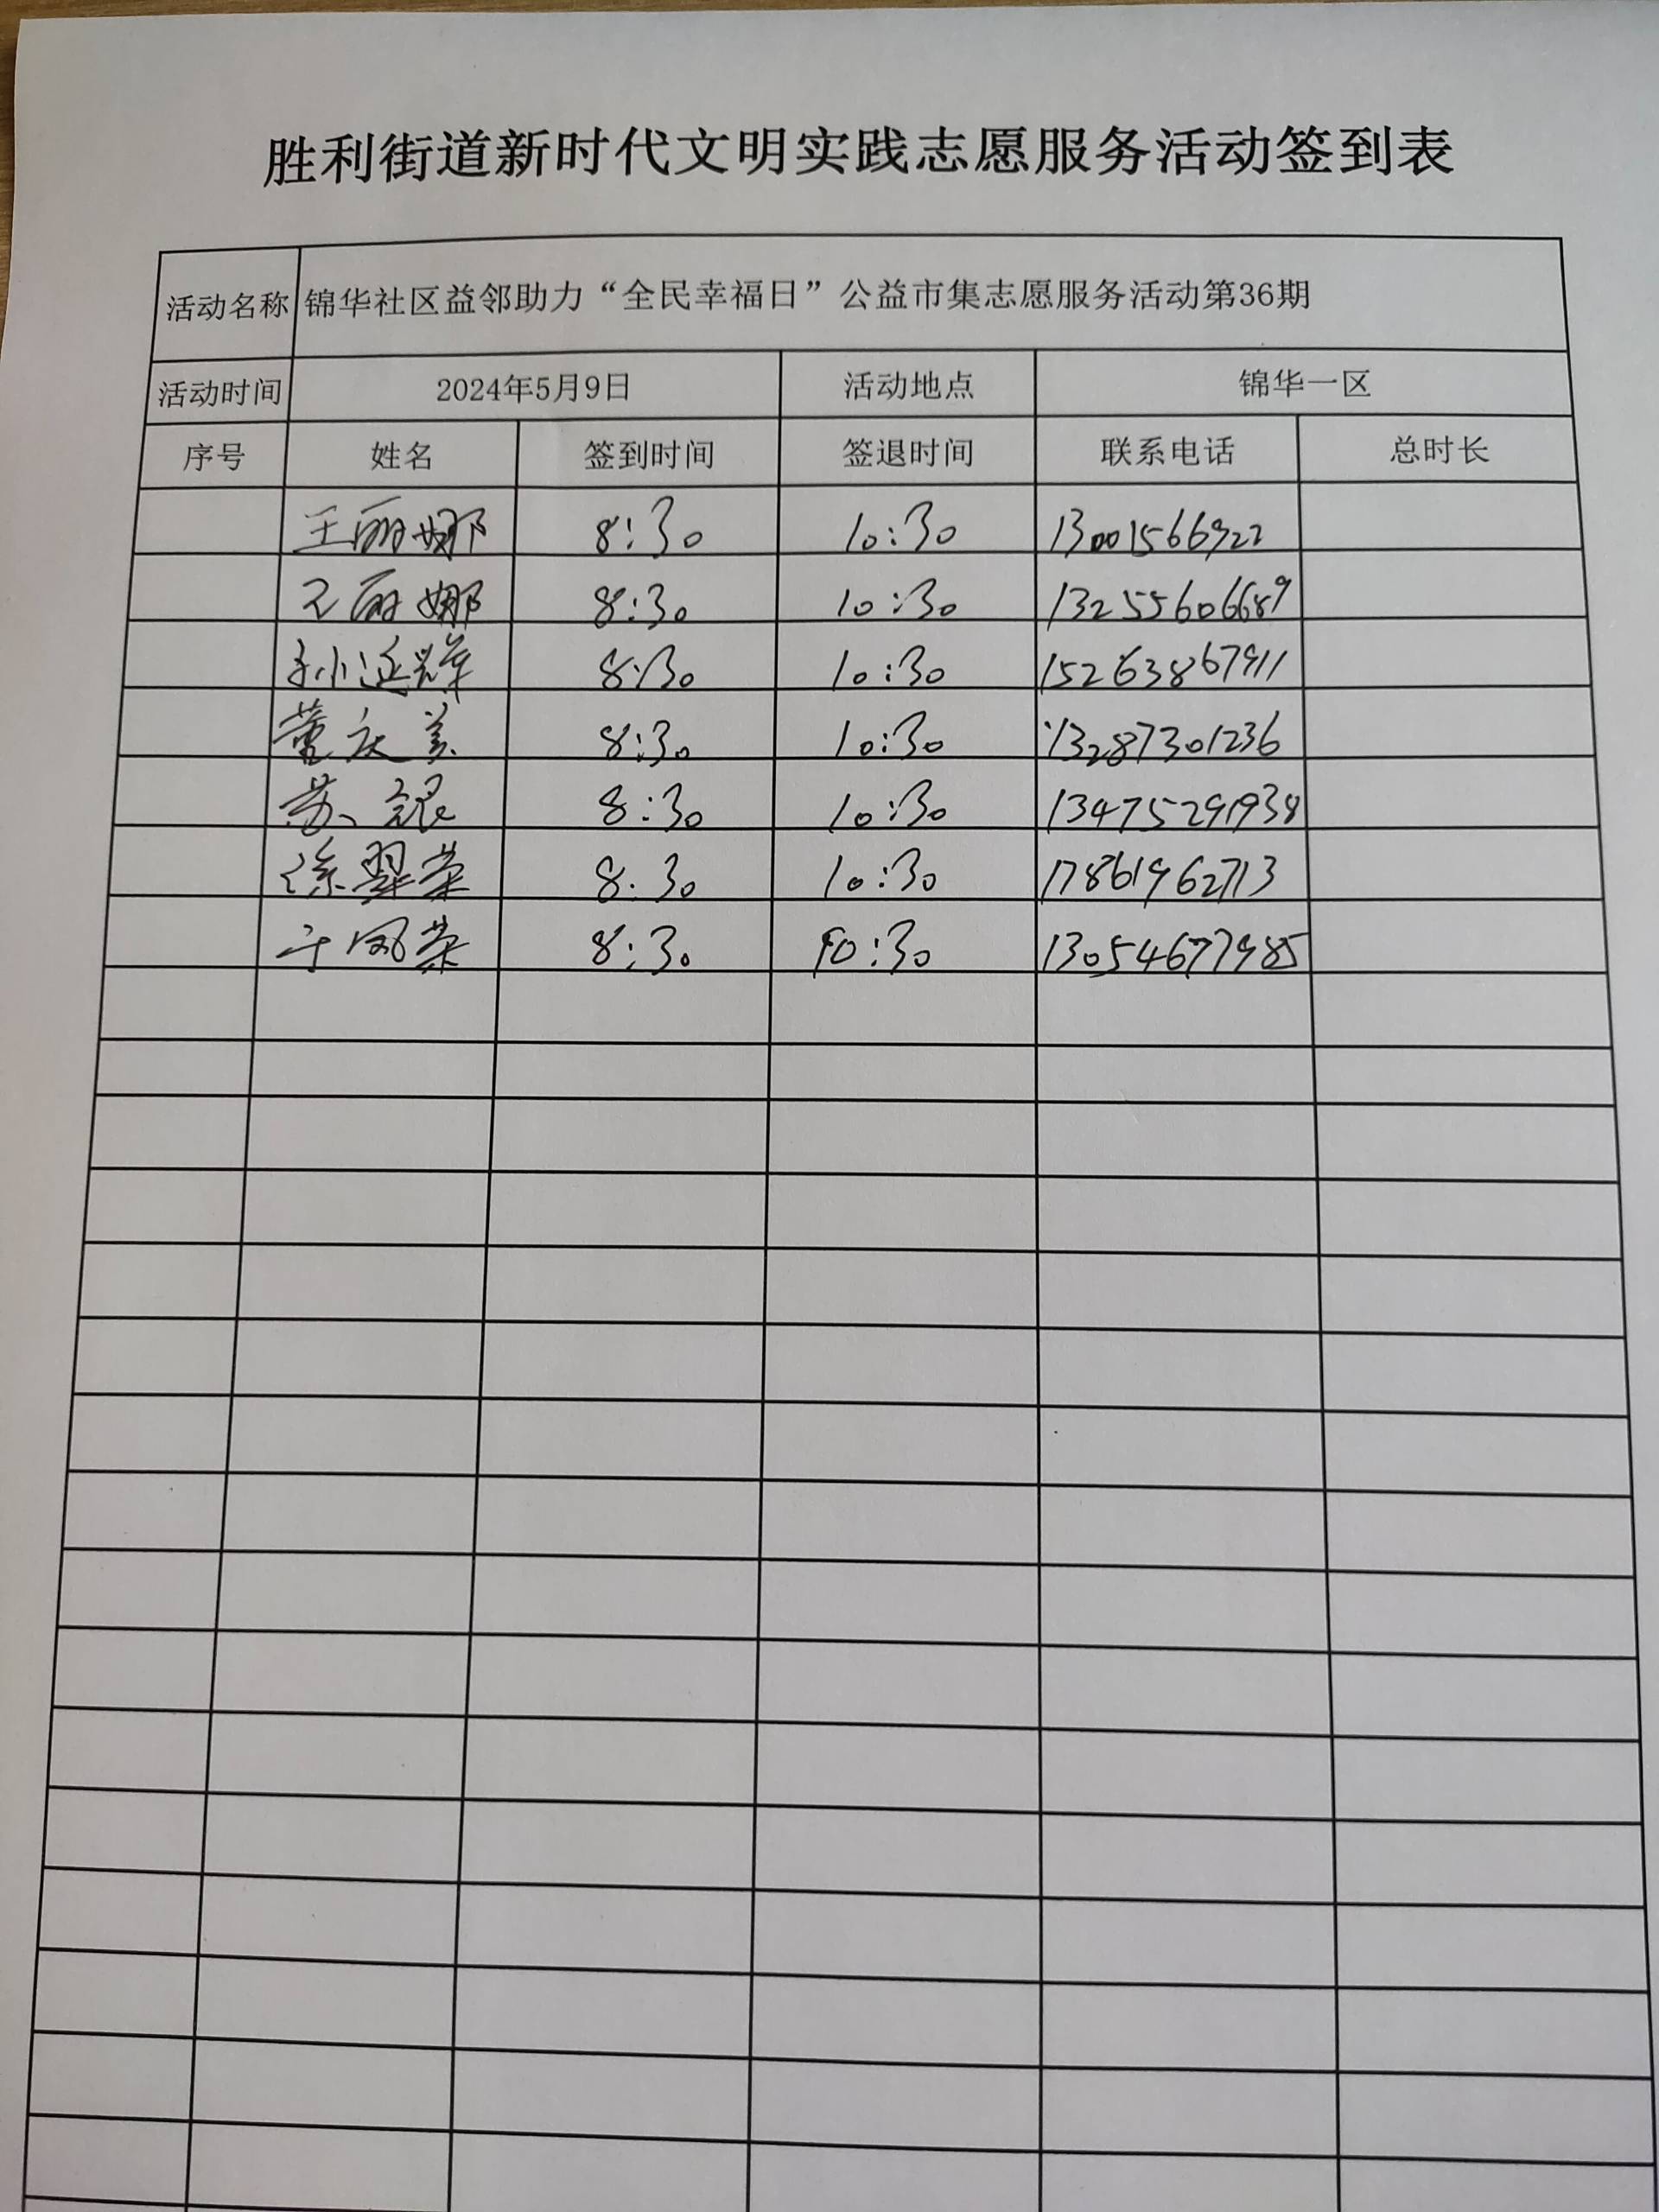 胜利街道新时代文明实践志愿服务活动签到表
活动名称 锦华社区益邻助力“全民幸福日”公益市集志愿服务活动第36期
活动时间 2024年5月9日 活动地点 锦华一区
序号 姓名 签到时间 签退时间 联系电话 总时长
王丽娜 8:30 10:30 13001566922
王丽娜 8:30 10:30 13255606689
孙延辉 8:30 10:30 15263867911
董庆美 8:30 10:30 13287301236
苏 8:30 10:30 13475291938
徐翠荣 8:30 10:30 17861962713
于凤荣 8:30 10:30 13054677985